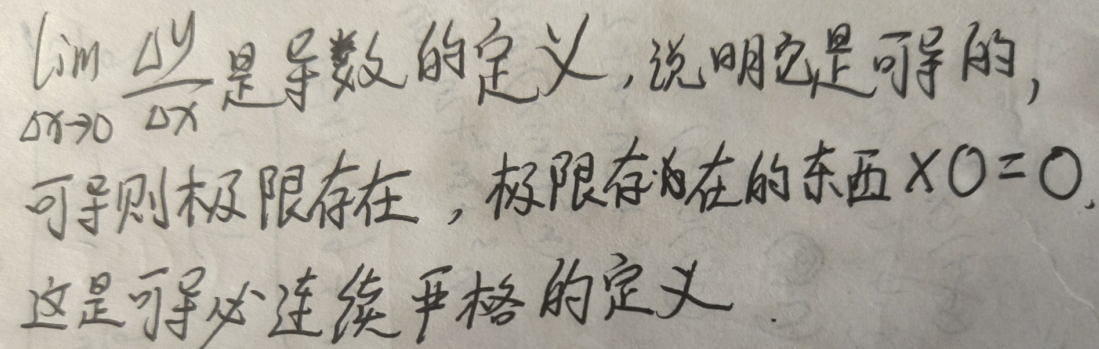 lim Δx→0 Δy/Δx 是导数的定义,说明它是可导的,
可导则极限存在,极限存在的东西×0=0.
这是可导必连续严格的定义.